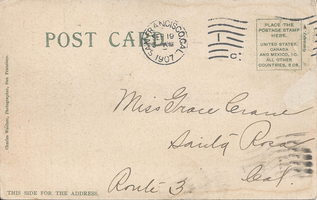 POST CARD
SAN FRANCISCO, CAL.
19
1907
1
C.
PLACE THE
POSTAGE STAMP
HERE.
UNITED STATES,
CANADA
AND MEXICO, 1C.
ALL OTHER
COUNTRIES, 2 CTS.
Charles Weidner, Photographer, San Francisco
Miss Grace Crane
Santa Rosa
Route 3. Cal.
THIS SIDE FOR THE ADDRESS.